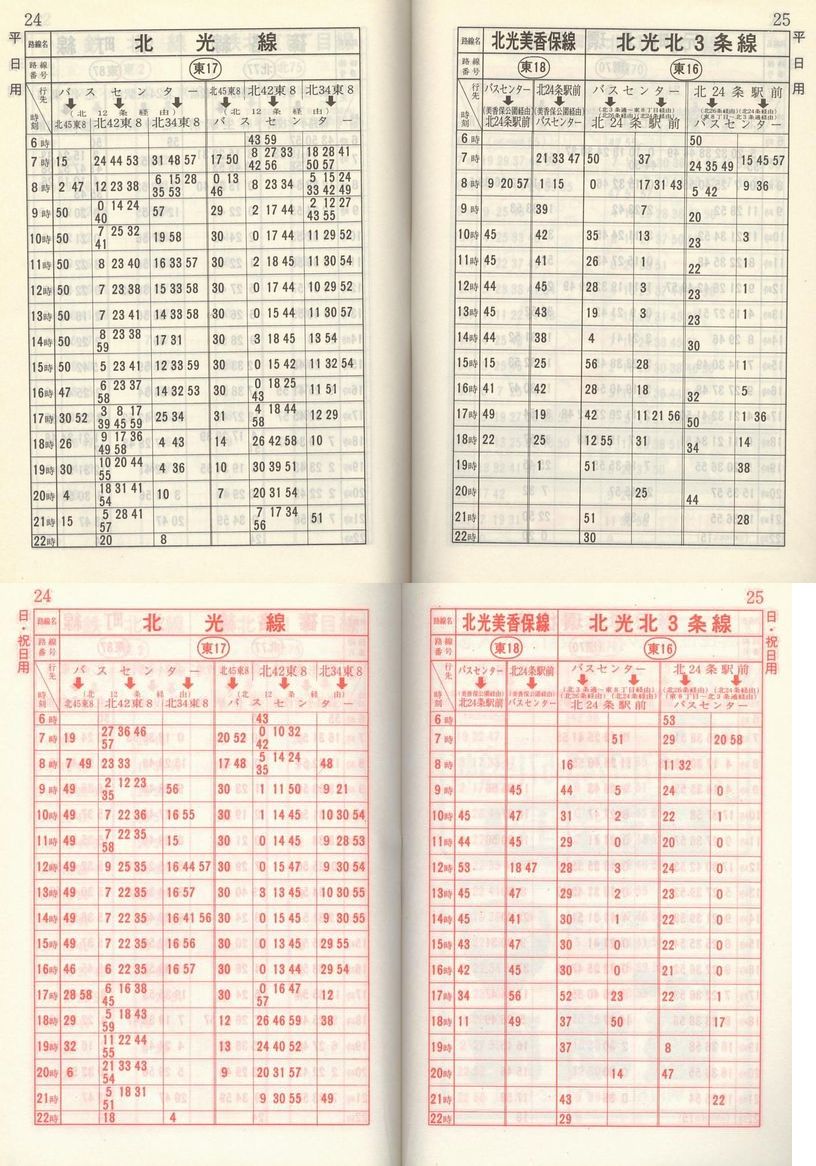 24
平日用
路線名 北光線
路線番号 東17
行先 時刻
バスセンター 北45東8 北42東8 北34東8
(北12条経由) (北12条経由)
北45東8 北42東8 北34東8 バスセンター
6時 43 59
7時 15 24 44 53 31 48 57 17 50 8 27 33 42 56 18 28 41 50 57
8時 2 47 12 23 38 6 15 28 35 53 0 13 46 8 23 34 5 15 24 33 42 49
9時 50 0 14 24 40 57 29 2 17 44 2 12 27 43 55
10時 50 7 25 32 41 19 58 30 0 17 44 11 29 52
11時 50 8 23 40 16 33 57 30 2 18 45 11 30 54
12時 50 7 23 38 15 33 58 30 0 17 44 10 29 52
13時 50 7 23 41 14 33 58 30 0 15 44 11 30 57
14時 50 8 23 38 59 17 31 30 3 18 45 13 54
15時 50 5 23 41 12 33 59 30 0 15 42 11 32 54
16時 47 6 23 37 58 14 32 53 30 0 18 25 43 11 51
17時 30 52 3 8 17 39 45 59 25 34 31 4 18 44 58 12 29
18時 26 9 17 36 49 58 4 43 14 26 42 58 10
19時 30 10 20 44 55 4 36 10 30 39 51
20時 4 18 31 41 54 10 7 20 31 54
21時 15 5 28 41 57 7 17 34 56 51
22時 20 8
25
平日用
路線名 北光美香保線 北光北3条線
路線番号 東18 東16
行先 時刻
バスセンター 北24条駅前 バスセンター 北24条駅前
(美香保公園経由) (美香保公園経由) (北3条通～東8丁目経由) (北26条経由) (北24条経由) (北26条経由) (北24条経由) (東8丁目～北3条経由)
北24条駅前 バスセンター 北24条駅前 バスセンター
6時 50
7時 21 33 47 50 37 24 35 49 15 45 57
8時 9 20 57 1 15 0 17 31 43 5 42 9 36
9時 39 7 20
10時 45 42 35 13 23 3
11時 45 41 26 1 22 1
12時 44 45 28 3 23 1
13時 45 43 19 3 23 1
14時 44 38 4 30
15時 15 25 56 28 1
16時 41 42 28 18 32 5
17時 49 19 42 11 21 56 50 1 36
18時 22 25 12 55 31 34 14
19時 1 51 38
20時 25 44
21時 51 28
22時 30
24
日・祝日用
路線名 北光線
路線番号 東17
行先 時刻
バスセンター 北45東8 北42東8 北34東8
(北12条経由) (北12条経由)
北45東8 北42東8 北34東8 バスセンター
6時 43
7時 19 27 36 46 57 20 52 0 10 32 42
8時 7 49 23 33 17 48 5 14 24 35 48
9時 49 2 12 23 35 56 30 1 11 50 9 21
10時 49 7 22 36 16 55 30 1 14 45 10 30 54
11時 49 7 22 35 58 15 30 0 14 45 9 28 53
12時 49 9 25 35 16 44 57 30 0 15 47 9 30 54
13時 49 7 22 35 16 57 30 3 13 45 10 30 55
14時 49 7 22 35 16 41 56 30 0 15 45 9 30 55
15時 49 7 22 35 16 56 30 0 13 45 29 55
16時 46 6 22 35 16 57 30 0 13 44 29 54
17時 28 58 6 16 38 45 30 0 16 47 57 12
18時 29 5 18 43 59 12 26 46 59 38
19時 32 11 22 44 55 13 24 40 52
20時 6 21 33 43 54 9 20 31 57
21時 5 18 31 51 9 30 55 49
22時 18 4
25
日・祝日用
路線名 北光美香保線 北光北3条線
路線番号 東18 東16
行先 時刻
バスセンター 北24条駅前 バスセンター 北24条駅前
(美香保公園経由) (美香保公園経由) (北3条通～東8丁目経由) (北26条経由) (北24条経由) (北26条経由) (北24条経由) (東8丁目～北3条経由)
北24条駅前 バスセンター 北24条駅前 バスセンター
6時 53
7時 51 29 20 58
8時 16 11 32
9時 45 44 5 24 0
10時 45 47 31 2 22 1
11時 44 45 29 0 20 0
12時 53 18 47 28 3 24 0
13時 45 47 29 2 23 0
14時 45 41 30 1 22 0
15時 43 47 30 0 22 0
16時 42 45 30 0 21 0
17時 34 56 52 23 22 1
18時 11 49 37 50 17
19時 37 8
20時 14 47
21時 43 22
22時 29